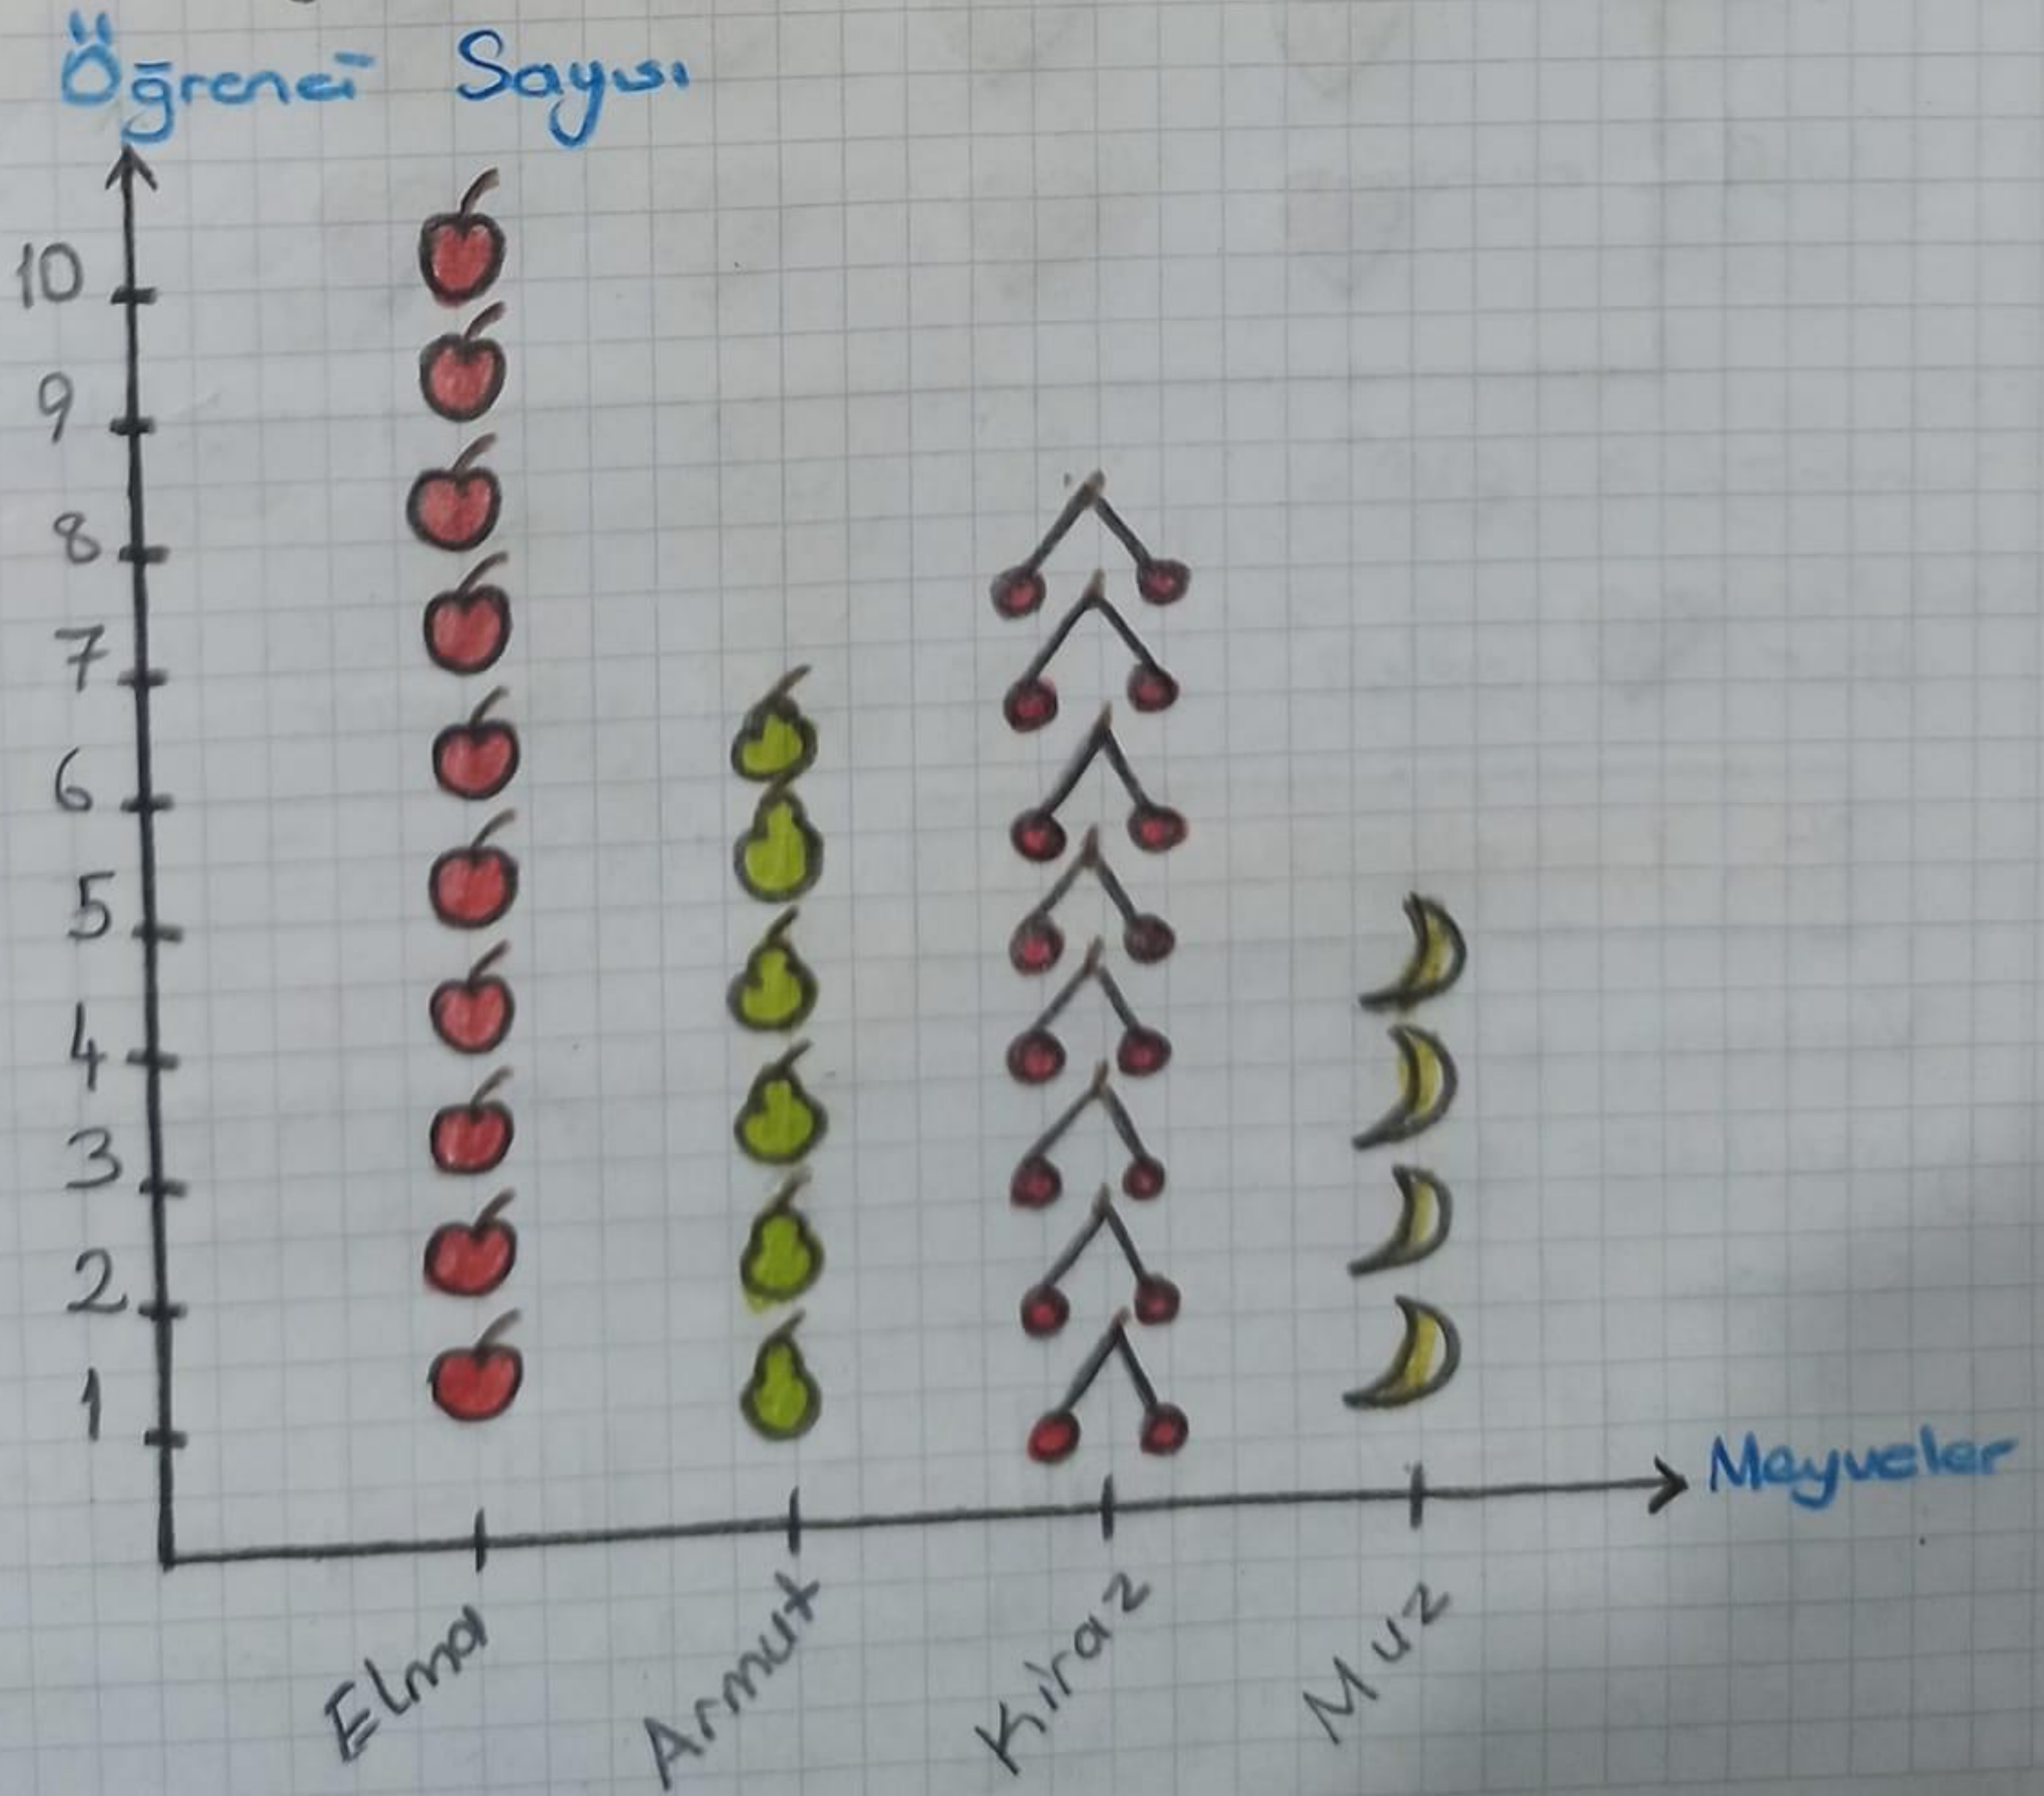 Öğrenci Sayısı
10
9
8
7
6
5
4
3
2
1
Meyveler
Elma
Armut
Kiraz
Muz